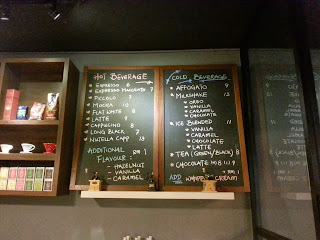 HOT BEVERAGE
ESPRESSO
ESPRESSO MACCHIATO 7
PICCOLO 7
MOCHA 10
FLAT WHITE 8
LATTE
CAPPUCCINO 8
LONG BLACK 7
NUTELLA CAPP 13
ADDITIONAL RM 1
FLAVOUR :
- HAZELNUT
- VANILLA
- CARAMEL
COLD BEVERAGE
AFFOGATO 9
MILKSHAKE 13
OREO
VANILLA
CARAMEL
CHOCOLATE
ICE BLENDED 11
VANILLA
CARAMEL
CHOCOLATE
LATTE
TEA (GREEN/BLACK) 8
CHOCOLATE
ADD RM 1
WHIPPED CREAM